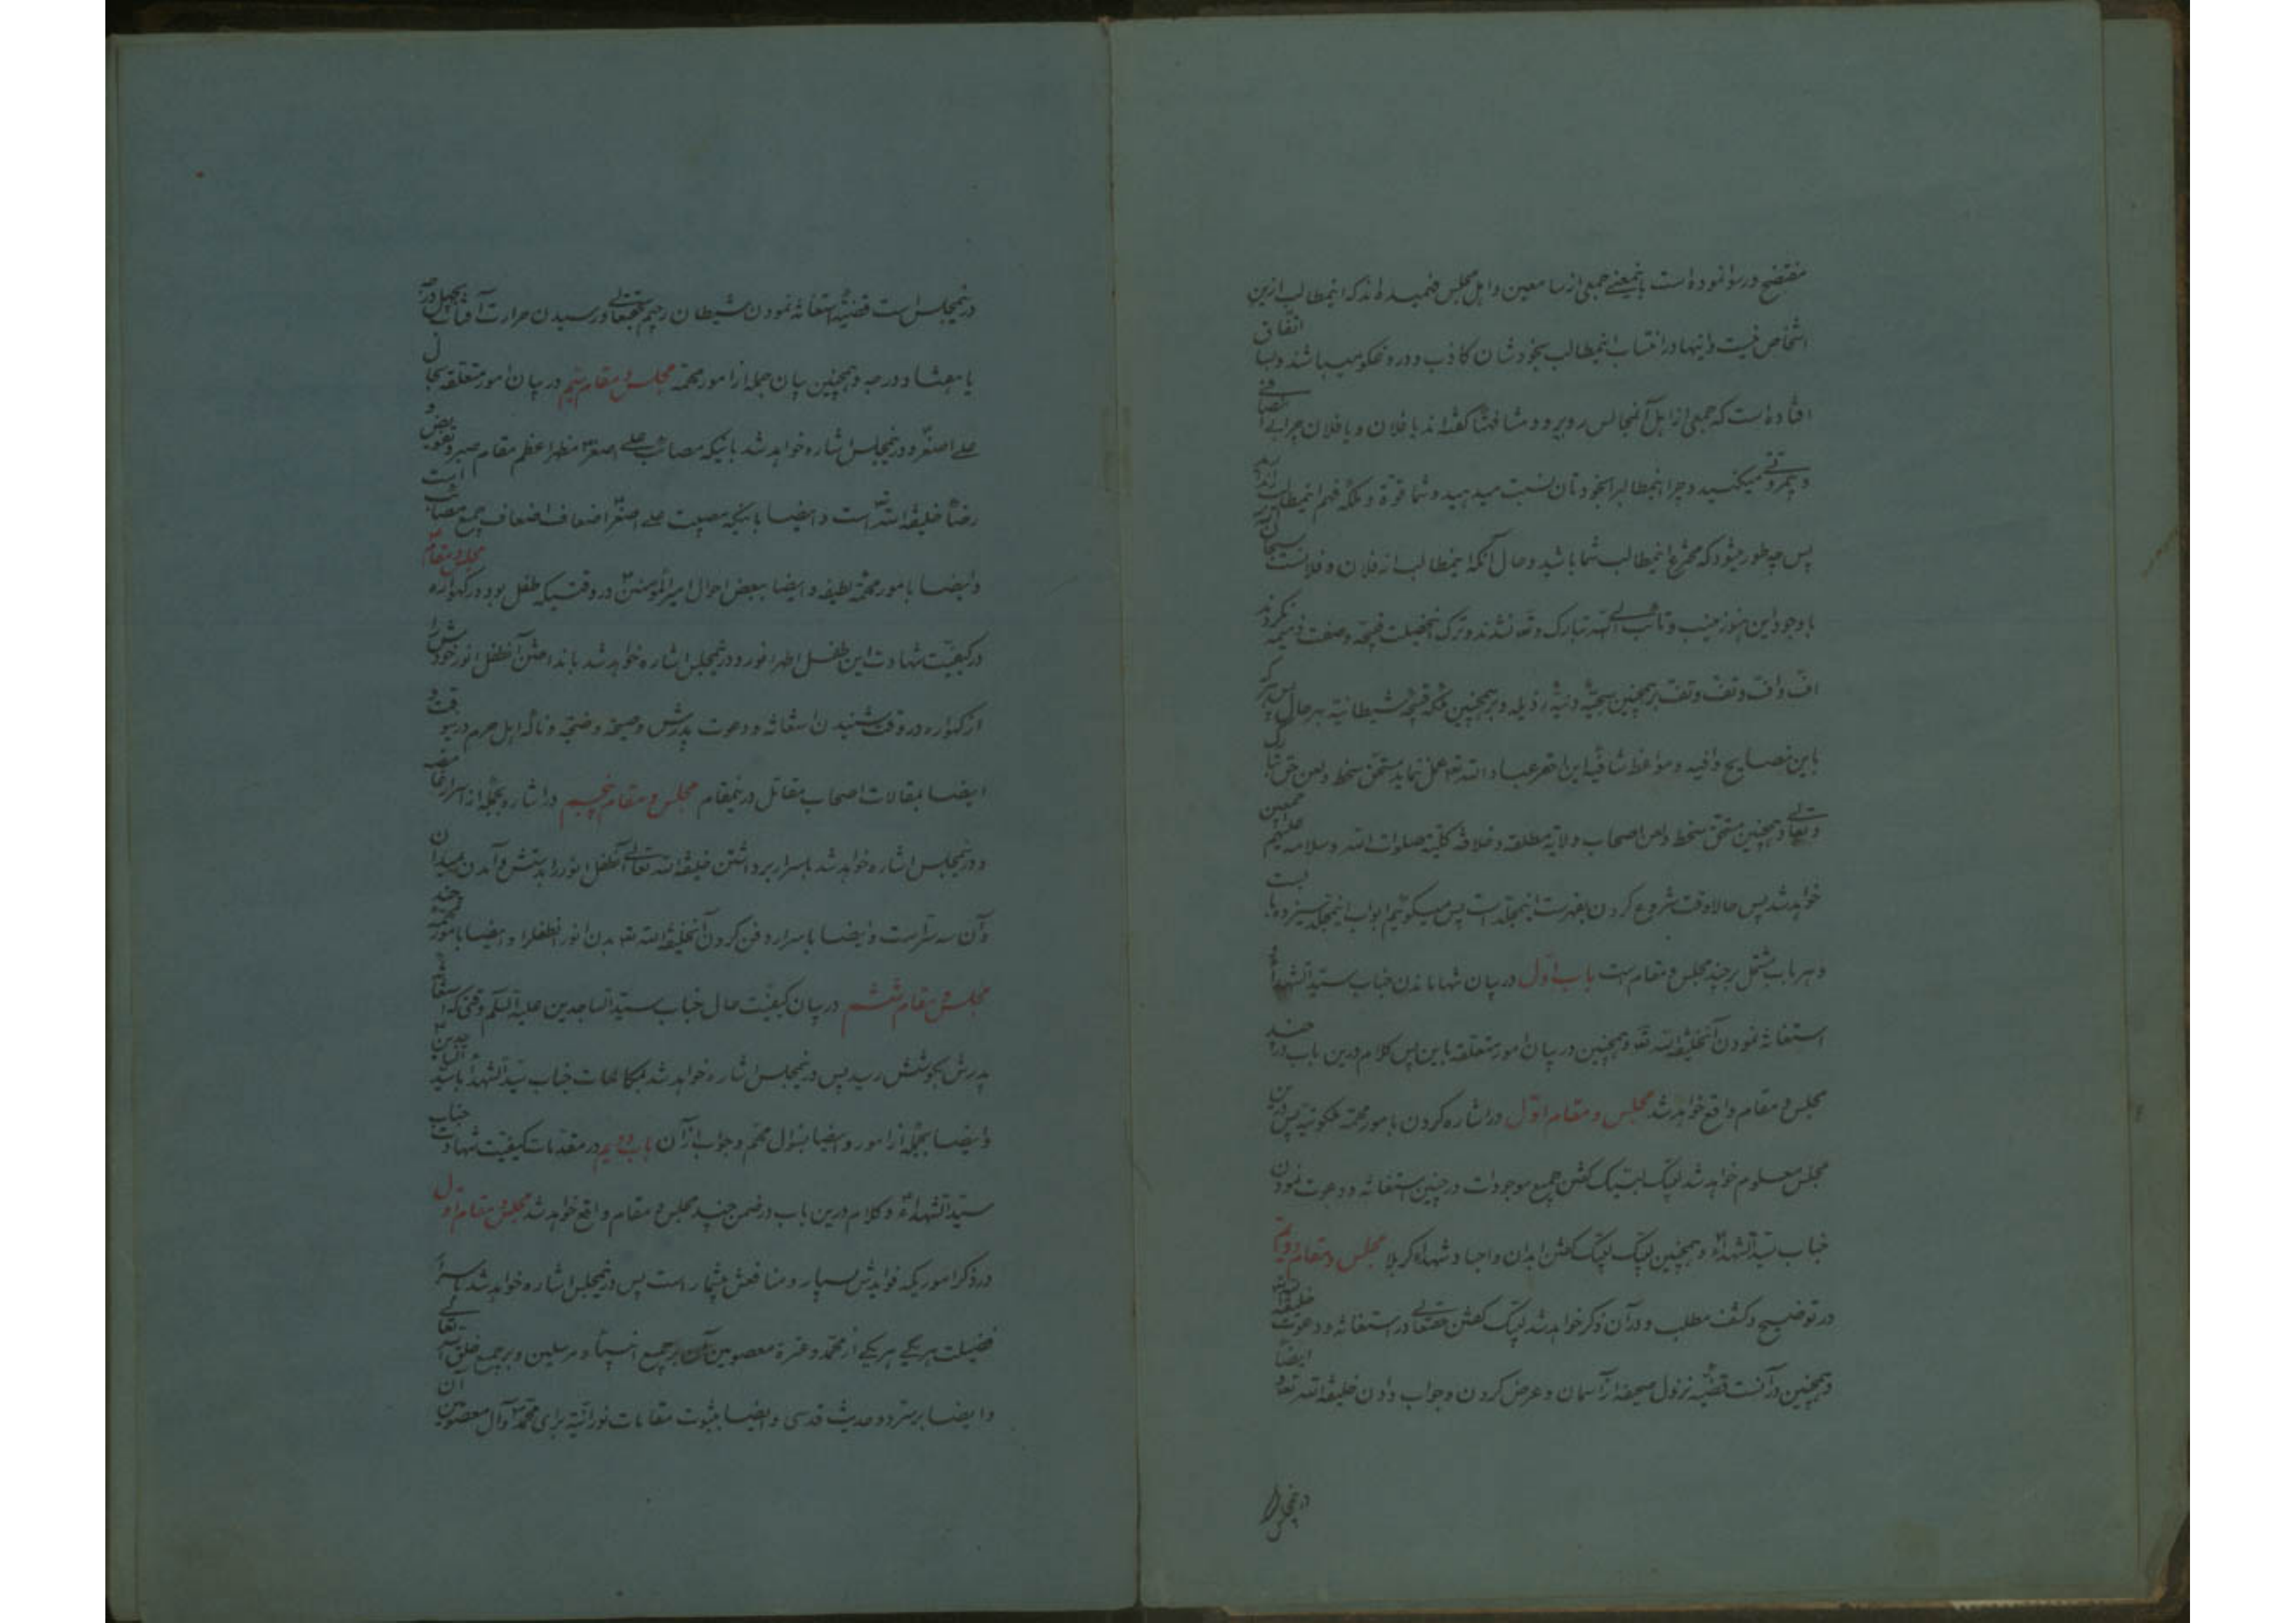 مفتضح و رسوا نموده است باینمعنی جمعی از سامعین و اهل مجلس فهمیده اند که اینمطالب ازین
اشخاص نیست و اینها در انتساب اینمطالب بخودشان کاذب و دروغگو میباشند و بسا اتفاق
افتاده است که جمعی از اهل آنمجالس روبرو و مشافهة گفته اند بافلان و بافلان چرا بی انصافی
و بیمروتی میکنید و چرا اینمطالب را بخودتان نسبت میدهید و شما قوة و ملکه فهم اینمطالب را ندارید
پس چه طور میشود که مخترع اینمطالب شما باشید و حال آنکه اینمطالب از فلان و فلانست
با وجود این هنوز منیب و تائب الی الله تبارک و تعالی نشدند و ترک اینخصلت قبیحه و صفت ذمیمه نکردند
اف و اف و تف و تف بر همچنین سجیّه دنیّه رذیله و بر همچنین ملکه قبیحه شیطانیّه بهر حال پس هر که
باین نصایح وافیه و مواعظ شافیه این احقر عباد الله تعالی عمل ننماید مستحق سخط و لعن حق تبارک
و تعالی و همچنین مستحق سخط و لعن اصحاب ولایة مطلقه و خلافة کلیّة صلوات الله و سلامه علیهم اجمعین
خواهد شد پس حالا وقت شروع کردن بفهرست اینمجلّد است پس میگوئیم ابواب اینمجلد
و هر باب مشتمل بر چند مجلس و مقام است باب اوّل در بیان تنها ماندن جناب سیّد الشهداء و
استغاثه نمودن آنخلیفة الله تعالی و همچنین در بیان امور متعلقه باین پس کلام درین باب در چند
مجلس و مقام واقع خواهد شد مجلس و مقام اوّل در اشاره کردن بامور مهمّه ملکوتیه پس درین
مجلس معلوم خواهد شد لبّیک لبّیک گفتن جمیع موجودات در حین استغاثه و دعوت نمودن
جناب سیّد الشهداء و همچنین لبّیک لبّیک گفتن ابدان و اجساد شهداء کربلا مجلس و مقام دویم
در توضیح و کشف مطلب و در آن ذکر خواهد شد لبّیک گفتن حقتعالی در استغاثه و دعوت خلیفة الله
و همچنین در آنست قضیّه نزول صحیفه از آسمان و عرض کردن و جواب دادن خلیفة الله تعالی و ایضاً
در اینمجلس
در اینمجلس است قضیّه استغاثه نمودن شیطان رجیم بحقتعالی در رسیدن حرارت آفتاب بچهل درجه
یا هشتاد درجه و همچنین بیان جمله از امور مهمّه مجلس و مقام سیّم در بیان امور متعلقه بحال
علی اصغر و در اینمجلس اشاره خواهد شد باینکه مصائب علی اصغر مظهر اعظم مقام صبر و تفویض و
رضاء خلیفة الله است و ایضا باینکه مصیبت علی اصغر اضعاف اضعاف جمیع مصائب است
و ایضا بامور مهمّه لطیفه و ایضا ببعض احوال امیر المؤمنین در وقتیکه طفل بود در گهواره مجلس و مقام
در کیفیّت شهادت این طفل اطهر انور و در اینمجلس اشاره خواهد شد بانداختن آنطفل انور خودش را
از گهواره در وقت شنیدن استغاثه و دعوت پدرش و صیحه و ضجّه و ناله اهل حرم
ایضا بمقالات اصحاب مقاتل در اینمقام مجلس و مقام پنجم در اشاره بجمله از اسرار
و در اینمجلس اشاره خواهد شد باسرار برداشتن خلیفة الله تعالی آنطفل انور را بدستش و آمدن بمیدان
و آن سه سرّ است و ایضا باسرار دفن کردن آنخلیفة الله تعالی بدن انور آنطفل را و ایضا بامور مهمّه چند
مجلس و مقام ششم در بیان کیفیّت حال جناب سیّد الساجدین علیه السلم وقتی که استغاثه
پدرش بگوشش رسید پس در اینمجلس اشاره خواهد شد بمکالمات جناب سیّد الشهداء با سیّد الساجدین
و ایضا بجمله از امور و ایضا بسؤال مهّم و جواب از آن باب دویم در مقدّمات کیفیّت شهادت جناب
سیّد الشهداء و کلام درین باب در ضمن چند مجلس و مقام واقع خواهد شد مجلس و مقام اوّل
در ذکر اموریکه فوایدش بسیار و منافعش بیشمار است پس در اینمجلس اشاره خواهد شد
فضیلت هر یکی هر یکی از محمّد و عترة معصومین آن بر جمیع انبیاء و مرسلین و بر جمیع خلق الله تعالی
و ایضا بر سرّ و حدیث قدسی و ایضا بثبوت مقامات نورانیّه برای محمّد و آل معصومین آن